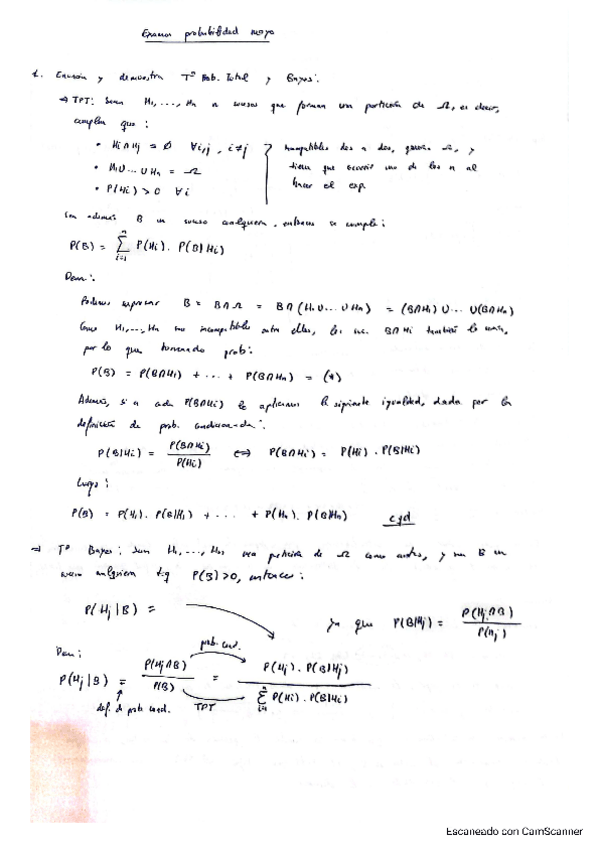 Examen probabilidad mayo
1. Enuncia y demuestra Tª Prob. Total y Bayes:
⇒ TPT: Sean H1, ..., Hn n sucesos que forman una partición de Ω, es decir,
cumplen que:
• Hi∩Hj = Ø ∀i,j, i≠j
• H1∪...∪Hn = Ω
• P(Hi) > 0 ∀i
incompatibles dos a dos, Ω, y
tiene que ocurrir uno de los n al
hacer el exp.
Sea además B un suceso cualquiera, entonces se cumple:
P(B) = Σ_{i=1}^{n} P(Hi) · P(B|Hi)
Dem:
Podemos expresar B = B∩Ω = B∩(H1∪...∪Hn) = (B∩H1)∪...∪(B∩Hn)
Como H1,...,Hn son incompatibles entre ellos, los suc. B∩Hi también lo serán,
por lo que tomando prob:
P(B) = P(B∩H1) + ... + P(B∩Hn) = (*)
Además, si a cada P(B∩Hi) le aplicamos la siguiente igualdad, dada por la
definición de prob. condicionada:
P(B|Hi) = P(B∩Hi)/P(Hi) ⇔ P(B∩Hi) = P(Hi) · P(B|Hi)
Luego:
P(B) = P(H1) · P(B|H1) + ... + P(Hn) · P(B|Hn) cqd
⇒ Tª Bayes: Sean H1,...,Hn una partición de Ω como antes, y sea B un
suceso cualquiera tq P(B)>0, entonces:
P(Hj|B) =
ya que P(B|Hj) = P(Hj∩B)/P(Hj)
Dem:
prob. cond.
P(Hj|B) = P(Hj∩B)/P(B) = P(Hj) · P(B|Hj) / Σ_{i=1}^{n} P(Hi) · P(B|Hi)
def. de prob. cond. TPT
Escaneado con CamScanner